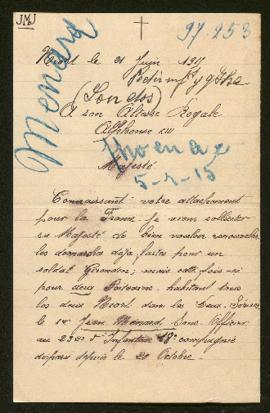 JMJ
97.253
Niort le 21 Juin 1915
Menard
(Son dos)
A son Altesse Royale
Alphonse XIII
Majesté
5-7-15
Connaissant votre attachement
pour la France je viens solliciter
sa Majesté de bien vouloir renouveler
les demandes déja faites pour un
soldat Girondin; mais cette fois-ci
pour deux Poitevins habitant tous
les deux Niort dans les Deux-Sèvres
le 1er Jean Menard Sous Officier
au 23e d'Infanterie 18e compagnie
disparu depuis le 21 Octobre.